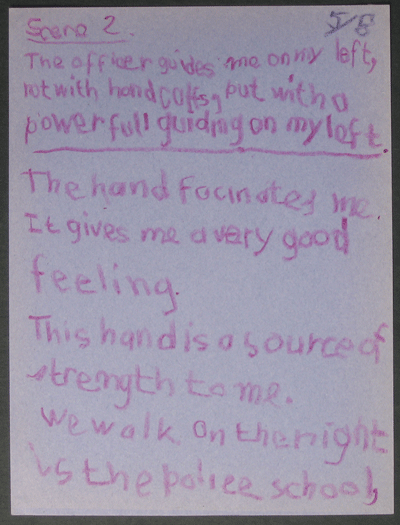 Scene 2. 5/8
The officer guides me on my left,
not with handcoffs, but with a
powerfull guiding on my left.
The hand focinates me.
It gives me a very good
feeling.
This hand is a source of
strength to me.
We walk. On the right
is the police school,